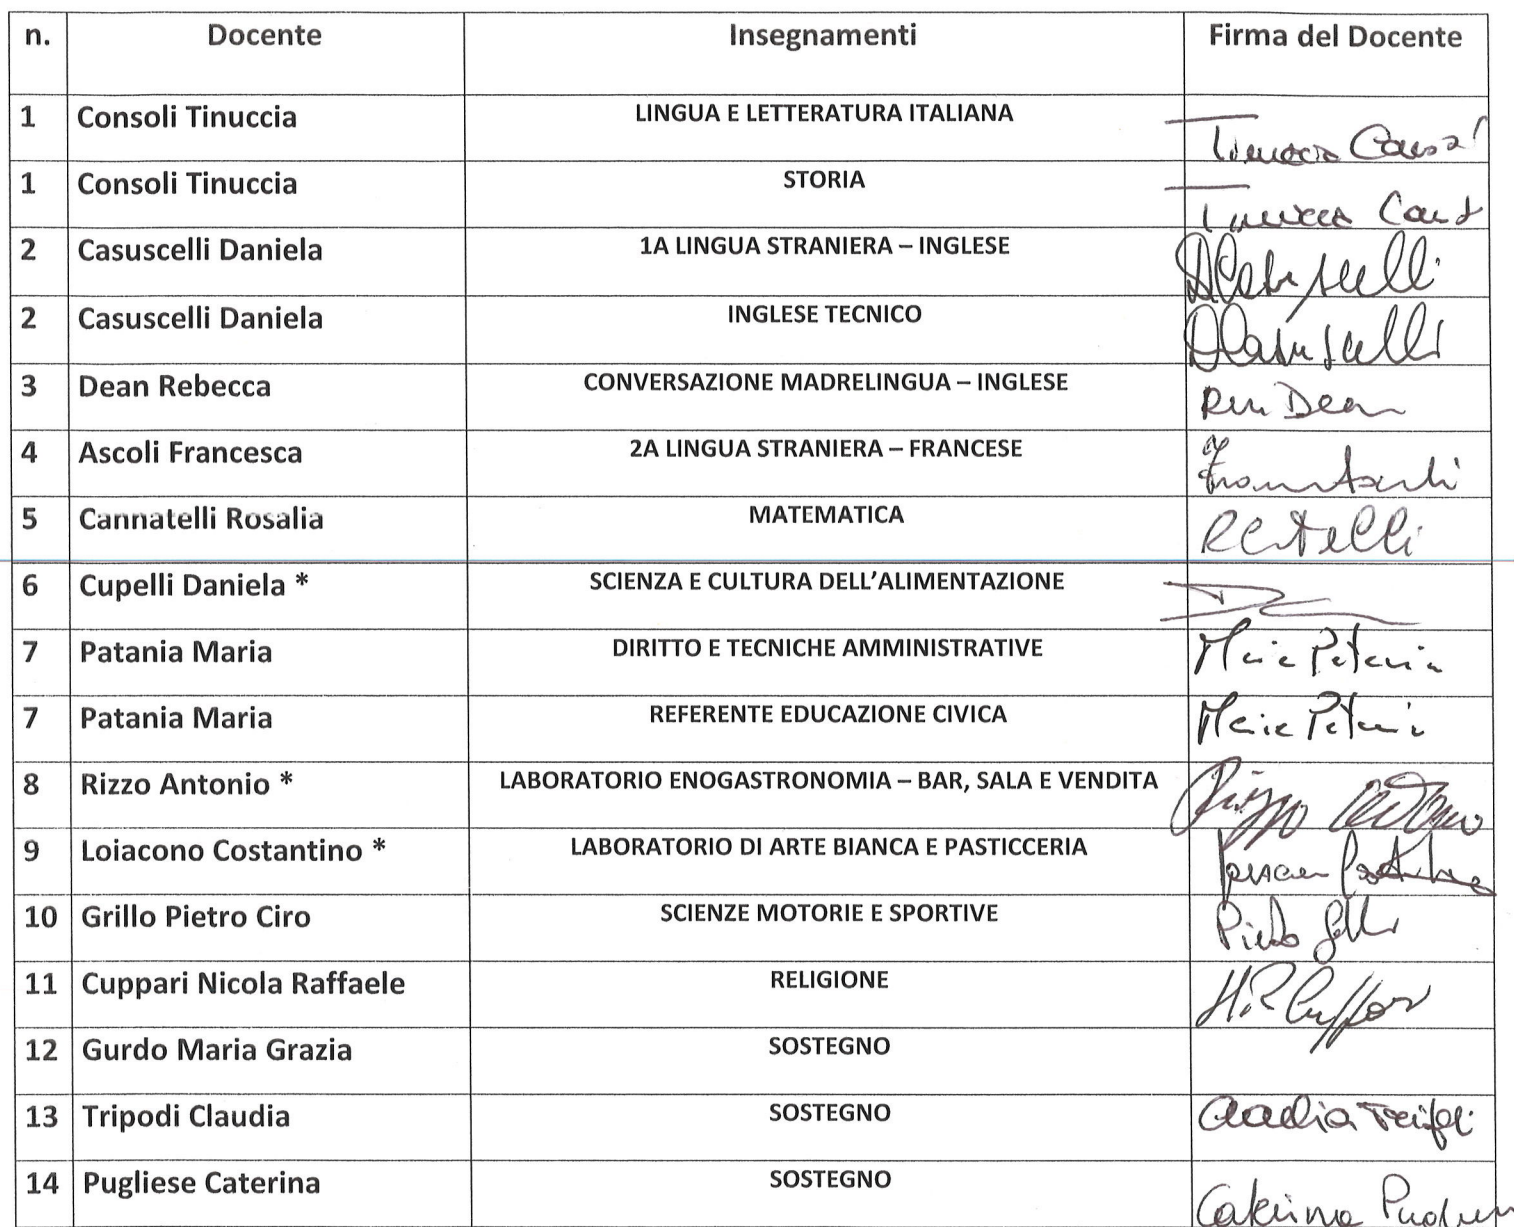 n. Docente Insegnamenti Firma del Docente
1 Consoli Tinuccia LINGUA E LETTERATURA ITALIANA Tinuccia Consoli
1 Consoli Tinuccia STORIA Tinuccia
2 Casuscelli Daniela 1A LINGUA STRANIERA – INGLESE DCasuscelli
2 Casuscelli Daniela INGLESE TECNICO DCasuscelli
3 Dean Rebecca CONVERSAZIONE MADRELINGUA – INGLESE Dean
4 Ascoli Francesca 2A LINGUA STRANIERA – FRANCESE
5 Cannatelli Rosalia MATEMATICA
6 Cupelli Daniela * SCIENZA E CULTURA DELL’ALIMENTAZIONE
7 Patania Maria DIRITTO E TECNICHE AMMINISTRATIVE Maria Patania
7 Patania Maria REFERENTE EDUCAZIONE CIVICA Maria Patania
8 Rizzo Antonio * LABORATORIO ENOGASTRONOMIA – BAR, SALA E VENDITA Rizzo Antonio
9 Loiacono Costantino * LABORATORIO DI ARTE BIANCA E PASTICCERIA
10 Grillo Pietro Ciro SCIENZE MOTORIE E SPORTIVE Pietro Grillo
11 Cuppari Nicola Raffaele RELIGIONE N.R. Cuppari
12 Gurdo Maria Grazia SOSTEGNO
13 Tripodi Claudia SOSTEGNO Claudia Tripodi
14 Pugliese Caterina SOSTEGNO Caterina Pugliese